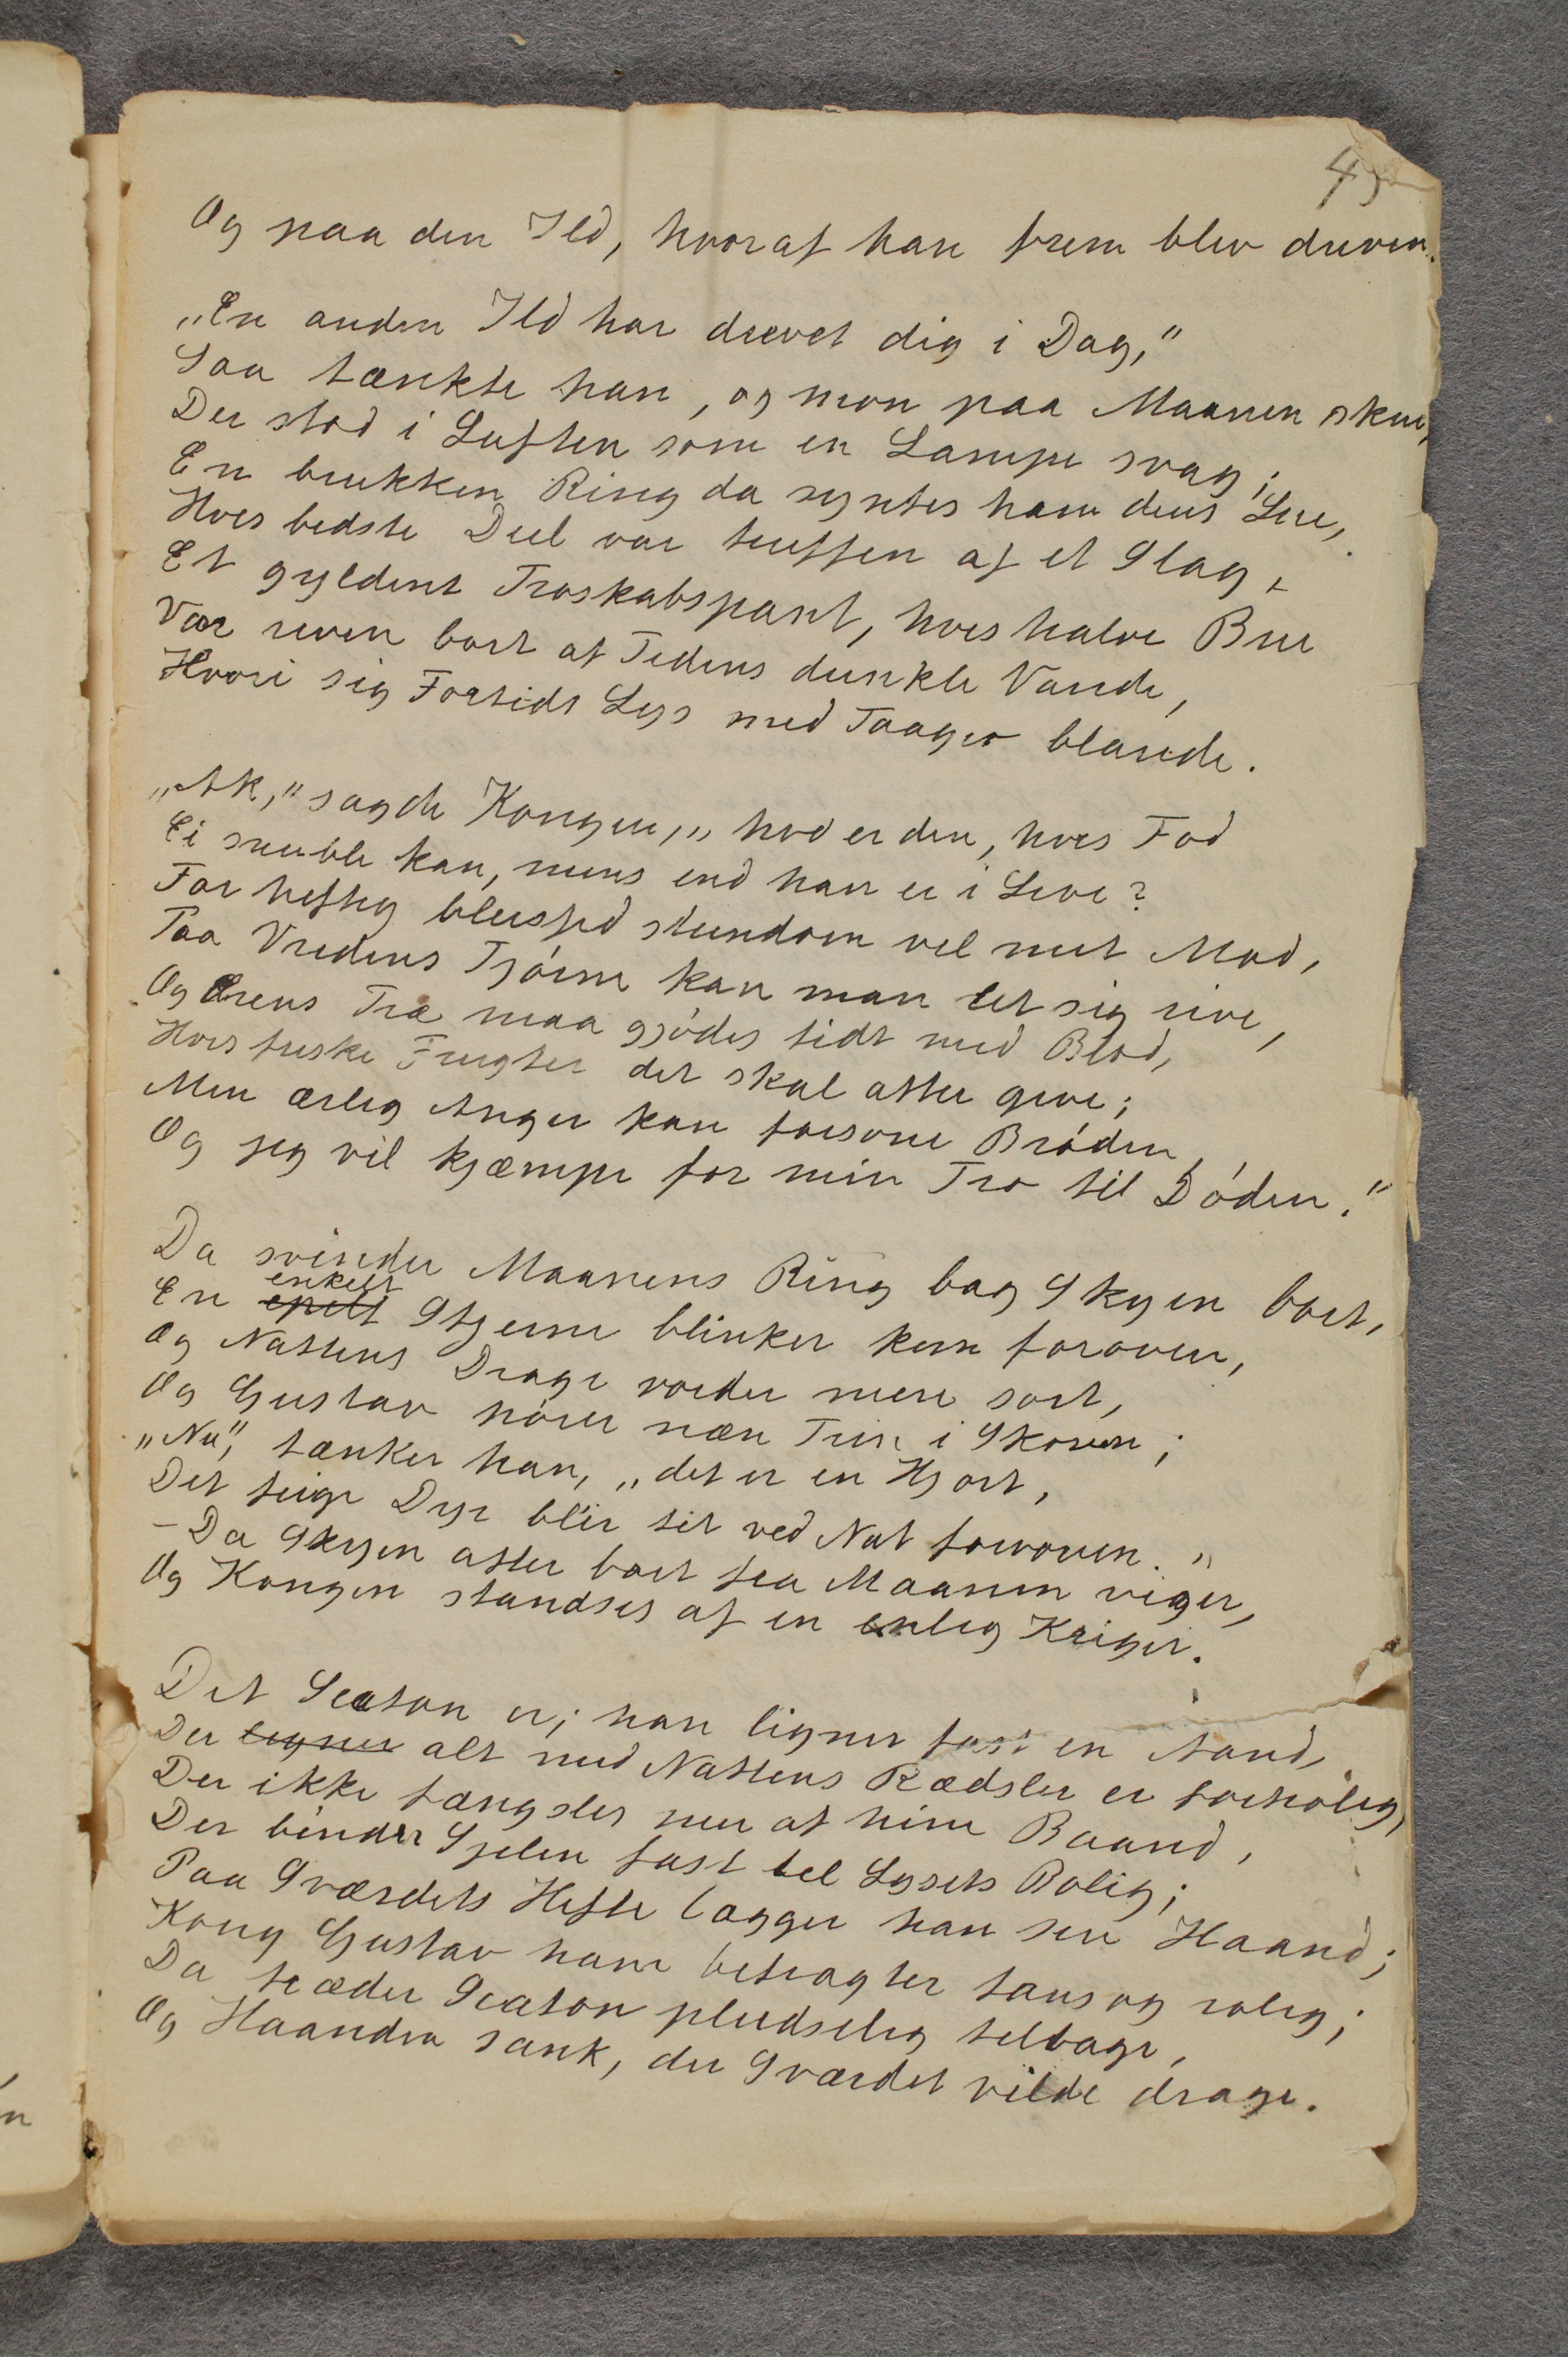 Og paa den Ild, hvoraf han frem blev dreven.
„En anden Ild har drevet dig i Dag,"
Saa tænkte han, og mon paa Maanen skue,
Der stod i Luften som en Lampe svag;
En brukken Ring da syntes ham dens Lue,
Hvis bedste Deel var truffen af et Slag,
Et gyldent Troskabspant, hvis halve Bue
Var reven bort af Tidens dunkle Vande,
Hvori sig Fortids Lys med Taager blande.
„Ak," sagde Kongen, „hvo er den, hvis Fod
Ei snuble kan, mens end han er i Live?
For heftig blusser stundom vel mit Mod,
Paa Vredens Tjørne kan man let sig rive,
Og Ærens Træ maa gjødes tidt med Blod,
Hvis friske Frugter det skal atter give;
Men ærlig Anger kan forsone Brøden,
Og jeg vil kjæmpe for min Tro til Døden."
Da svinder Maanens Ring bag Skyen bort,
En enkelt Stjerne blinker kun foroven,
Og Nattens Drage vorder mere sort,
Og Gustav hører nære Trin i Skoven;
„Nu", tænker han, „det er en Hjort,
Det feige Dyr blir tit ved Nat forvoven."
– Da Skyen atter bort fra Maanen viger,
Og Kongen standses af en enlig Kriger.
Det Seaton er; han ligner fast en Aand,
Der ligner alt med Nattens Rædsler er fortrolig,
Der ikke fængsles mer af hine Baand,
Der binder Sjelen fast til Lysets Bolig;
Paa Sværdets Hefte lægger han sin Haand;
Kong Gustav ham betragter taus og rolig;
Da træder Seaton pludselig tilbage,
Og Haanden sank, der Sværdet vilde drage.